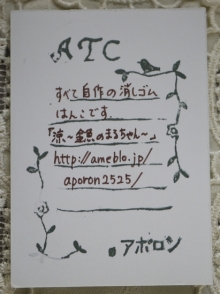 ATC
すべて自作の消しゴム
はんこです。
「涼~金魚のまるちゃん~」
http://ameblo.jp/
aporon2525/
アポロン